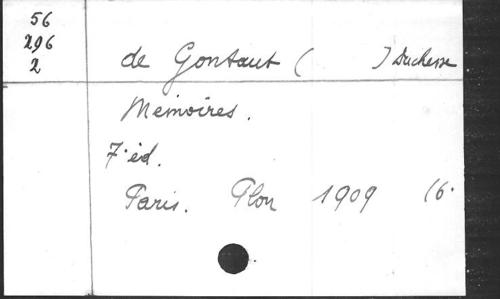 56
296
2
de Gontaut (          ) Duchesse
Mémoires.
7.éd.
Paris. Plon 1909 16.